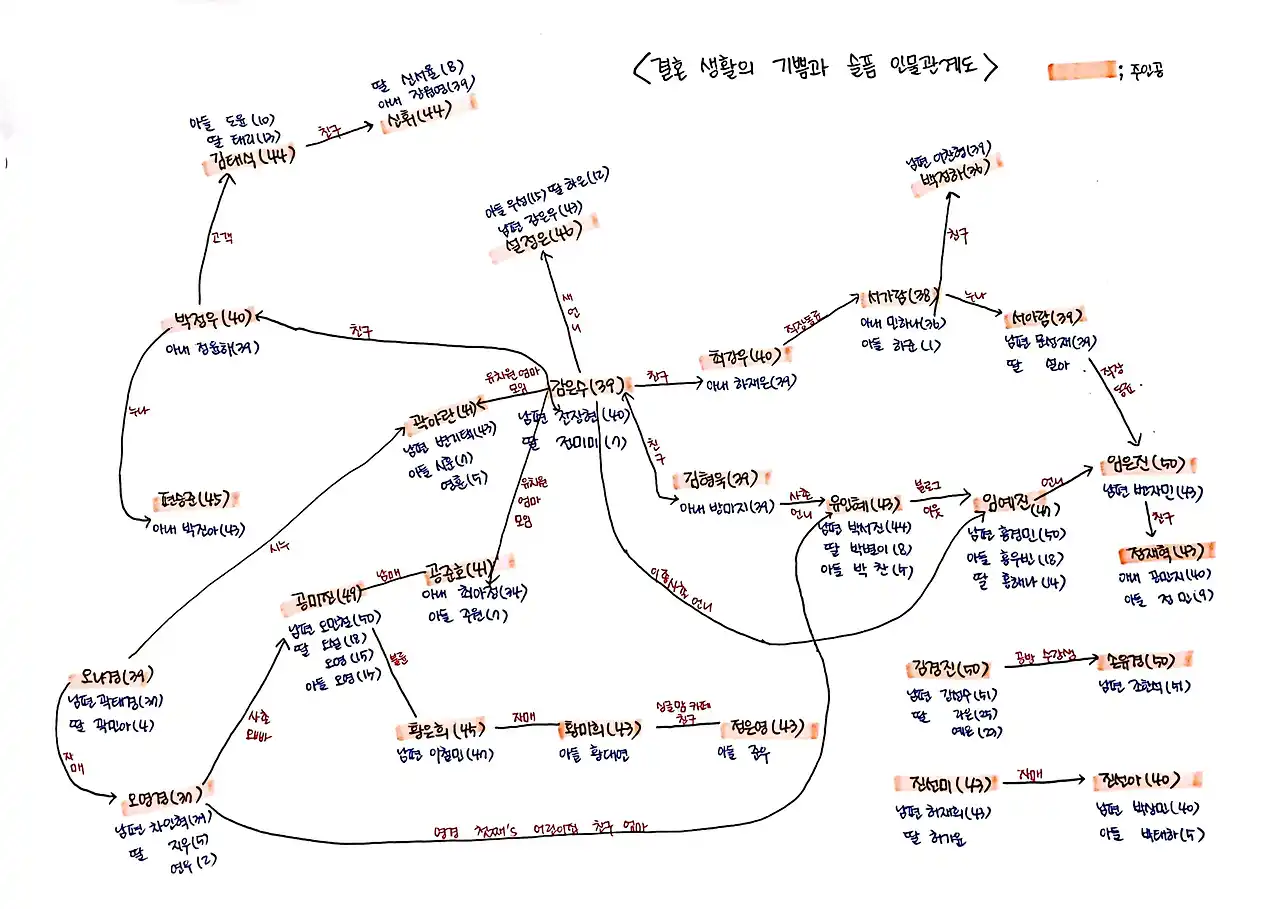 <결혼 생활의 기쁨과 슬픔 인물관계도>
; 주인공
딸 신서율(8)
아내 장원영(39)
신휘(44)
친구
아들 도윤(10)
딸 태리(13)
김태식(44)
고객
박정우(40)
아내 정윤하(39)
친구
누나
편승준(45)
아내 박진아(43)
아들 우성(15) 딸 하은(12)
남편 김은우(43)
설정은(46)
새언니
김은수(39)
남편 전장현(40)
딸 전미미(7)
유치원 엄마
모임
곽아란(41)
남편 변기택(43)
아들 시윤(7)
영훈(5)
시누
유치원
엄마
모임
공준호(41)
아내 최아정(34)
아들 주원(7)
남매
공미진(49)
남편 오민철(50)
딸 오설(18)
오영(15)
아들 오영(14)
불륜
황은희(45)
남편 이철민(47)
자매
황미희(43)
아들 황대연
싱글맘 카페
친구
정은영(43)
아들 준우
오나경(39)
남편 곽태경(37)
딸 곽민아(4)
자매
사촌
오빠
오영경(37)
남편 차인혁(39)
딸 지우(5)
연우(2)
영경 첫째's 어린이집 친구 엄마
친구
최강우(40)
아내 하재은(39)
직장동료
서가람(38)
아내 민하나(36)
아들 하준(1)
친구
남편 이찬형(39)
박정하(36)
누나
서아람(39)
남편 문성재(39)
딸 설아
직장
동료
친구
김형욱(39)
아내 방마지(39)
사촌
언니
유인혜(43)
남편 박서진(44)
딸 박별이(8)
아들 박찬(5)
블로그
이웃
임예진(47)
남편 홍경민(50)
아들 홍우빈(18)
딸 홍해나(14)
언니
이종사촌 언니
임은진(50)
남편 반자민(43)
친구
정재혁(43)
아내 김민지(40)
아들 정민(9)
김경진(50)
남편 김성우(51)
딸 가은(25)
예은(23)
공방 수강생
손유경(50)
남편 조한석(51)
진선미(43)
남편 허재희(43)
딸 허가윤
자매
진선아(40)
남편 박상민(40)
아들 박태하(5)